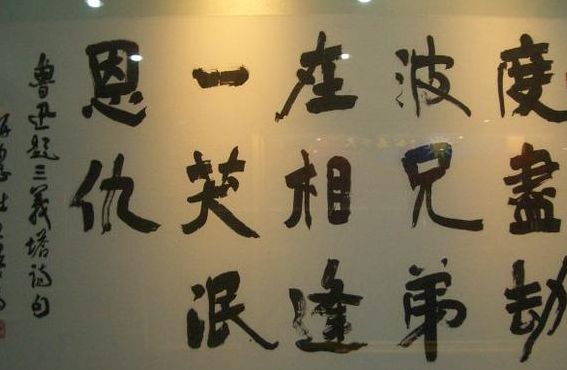 度盡劫
波兄弟
在相逢
一笑泯
恩仇
魯迅题三義塔詩句